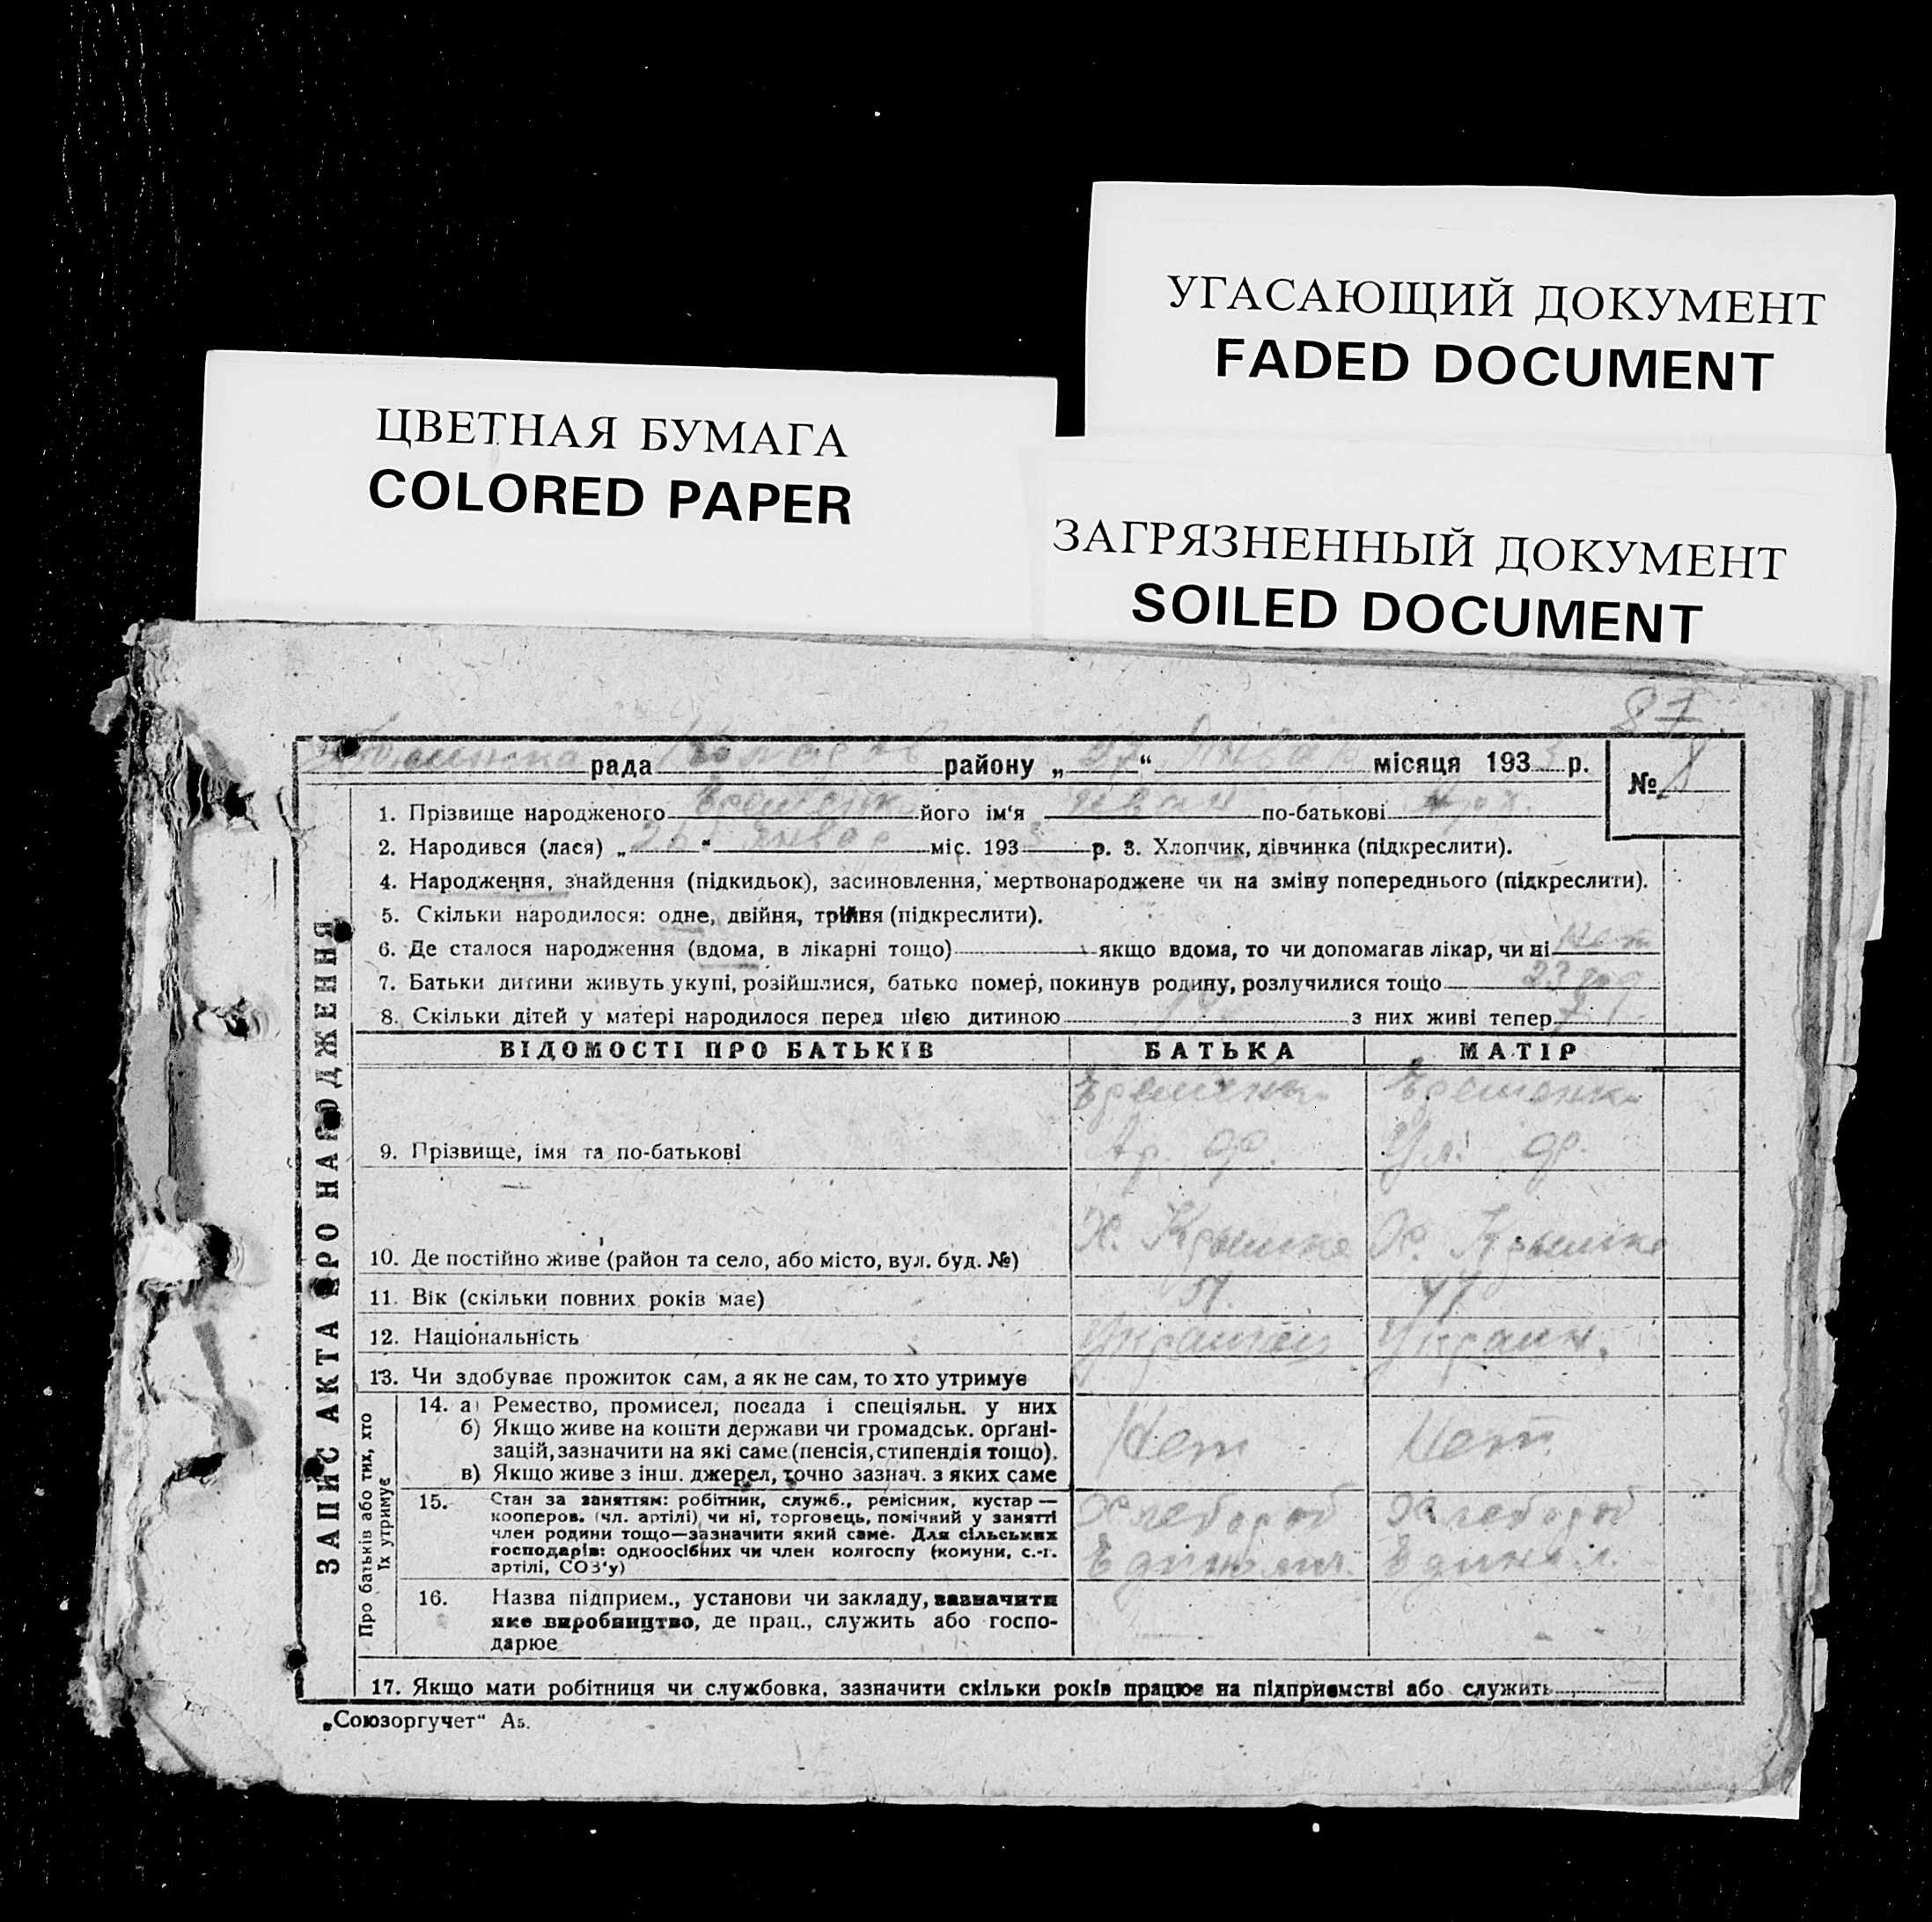 УГАСАЮЩИЙ ДОКУМЕНТ
FADED DOCUMENT
ЦВЕТНАЯ БУМАГА
COLORED PAPER
ЗАГРЯЗНЕННЫЙ ДОКУМЕНТ
SOILED DOCUMENT
87
рада района району „27“ Январ місяця 193 р.
№ 1
1. Прізвище народженого Еременко його ім‘я Иван по-батькові
2. Народився (лася) „26“ Январ міс. 193 р. 3. Хлопчик, дівчинка (підкреслити).
4. Народження, знайдення (підкидьок), засиновлення, мертвонароджене чи на зміну попереднього (підкреслити).
5. Скільки народилося: одне, двійня, трійня (підкреслити).
6. Де сталося народження (вдома, в лікарні тощо) якщо вдома, то чи допомагав лікар, чи ні Нет
7. Батьки дитини живуть укупі, розійшлися, батько помер, покинув родину, розлучилися тощо 23 год
8. Скільки дітей у матері народилося перед цією дитиною з них живі тепер
ВІДОМОСТІ ПРО БАТЬКІВ БАТЬКА МАТІР
Еременко Еременко
9. Прізвище, імя та по-батькові
10. Де постійно живе (район та село, або місто, вул. буд. №)
11. Вік (скільки повних років має)
12. Національність Украинец Украин.
13. Чи здобуває прожиток сам, а як не сам, то хто утримує
14. а) Ремество, промисел, посада і спеціяльн. у них
б) Якщо живе на кошти держави чи громадськ. органі-
зацій, зазначити на які саме (пенсія, стипендія тощо).
в) Якщо живе з інш. джерел, точно зазнач. з яких саме
Нет Нет
15. Стан за заняттям: робітник, служб., ремісник, кустар —
кооперов. (чл. артілі) чи ні, торговець, помічний у занятті
член родини тощо—зазначити який саме. Для сільських
господарів: одноосібних чи член колгоспу (комуни, с.-г.
артілі, СОЗ‘у)
Хлебороб Хлебороб
16. Назва підприєм., установи чи закладу, зазначити
яке виробництво, де прац., служить або госпо-
дарює
17. Якщо мати робітниця чи службовка, зазначити скільки років працює на підприємстві або служить
ЗАПИС АКТА ПРО НАРОДЖЕННЯ
Про батьків або тих, хто
їх утримує
„Союзоргучет“ А5.